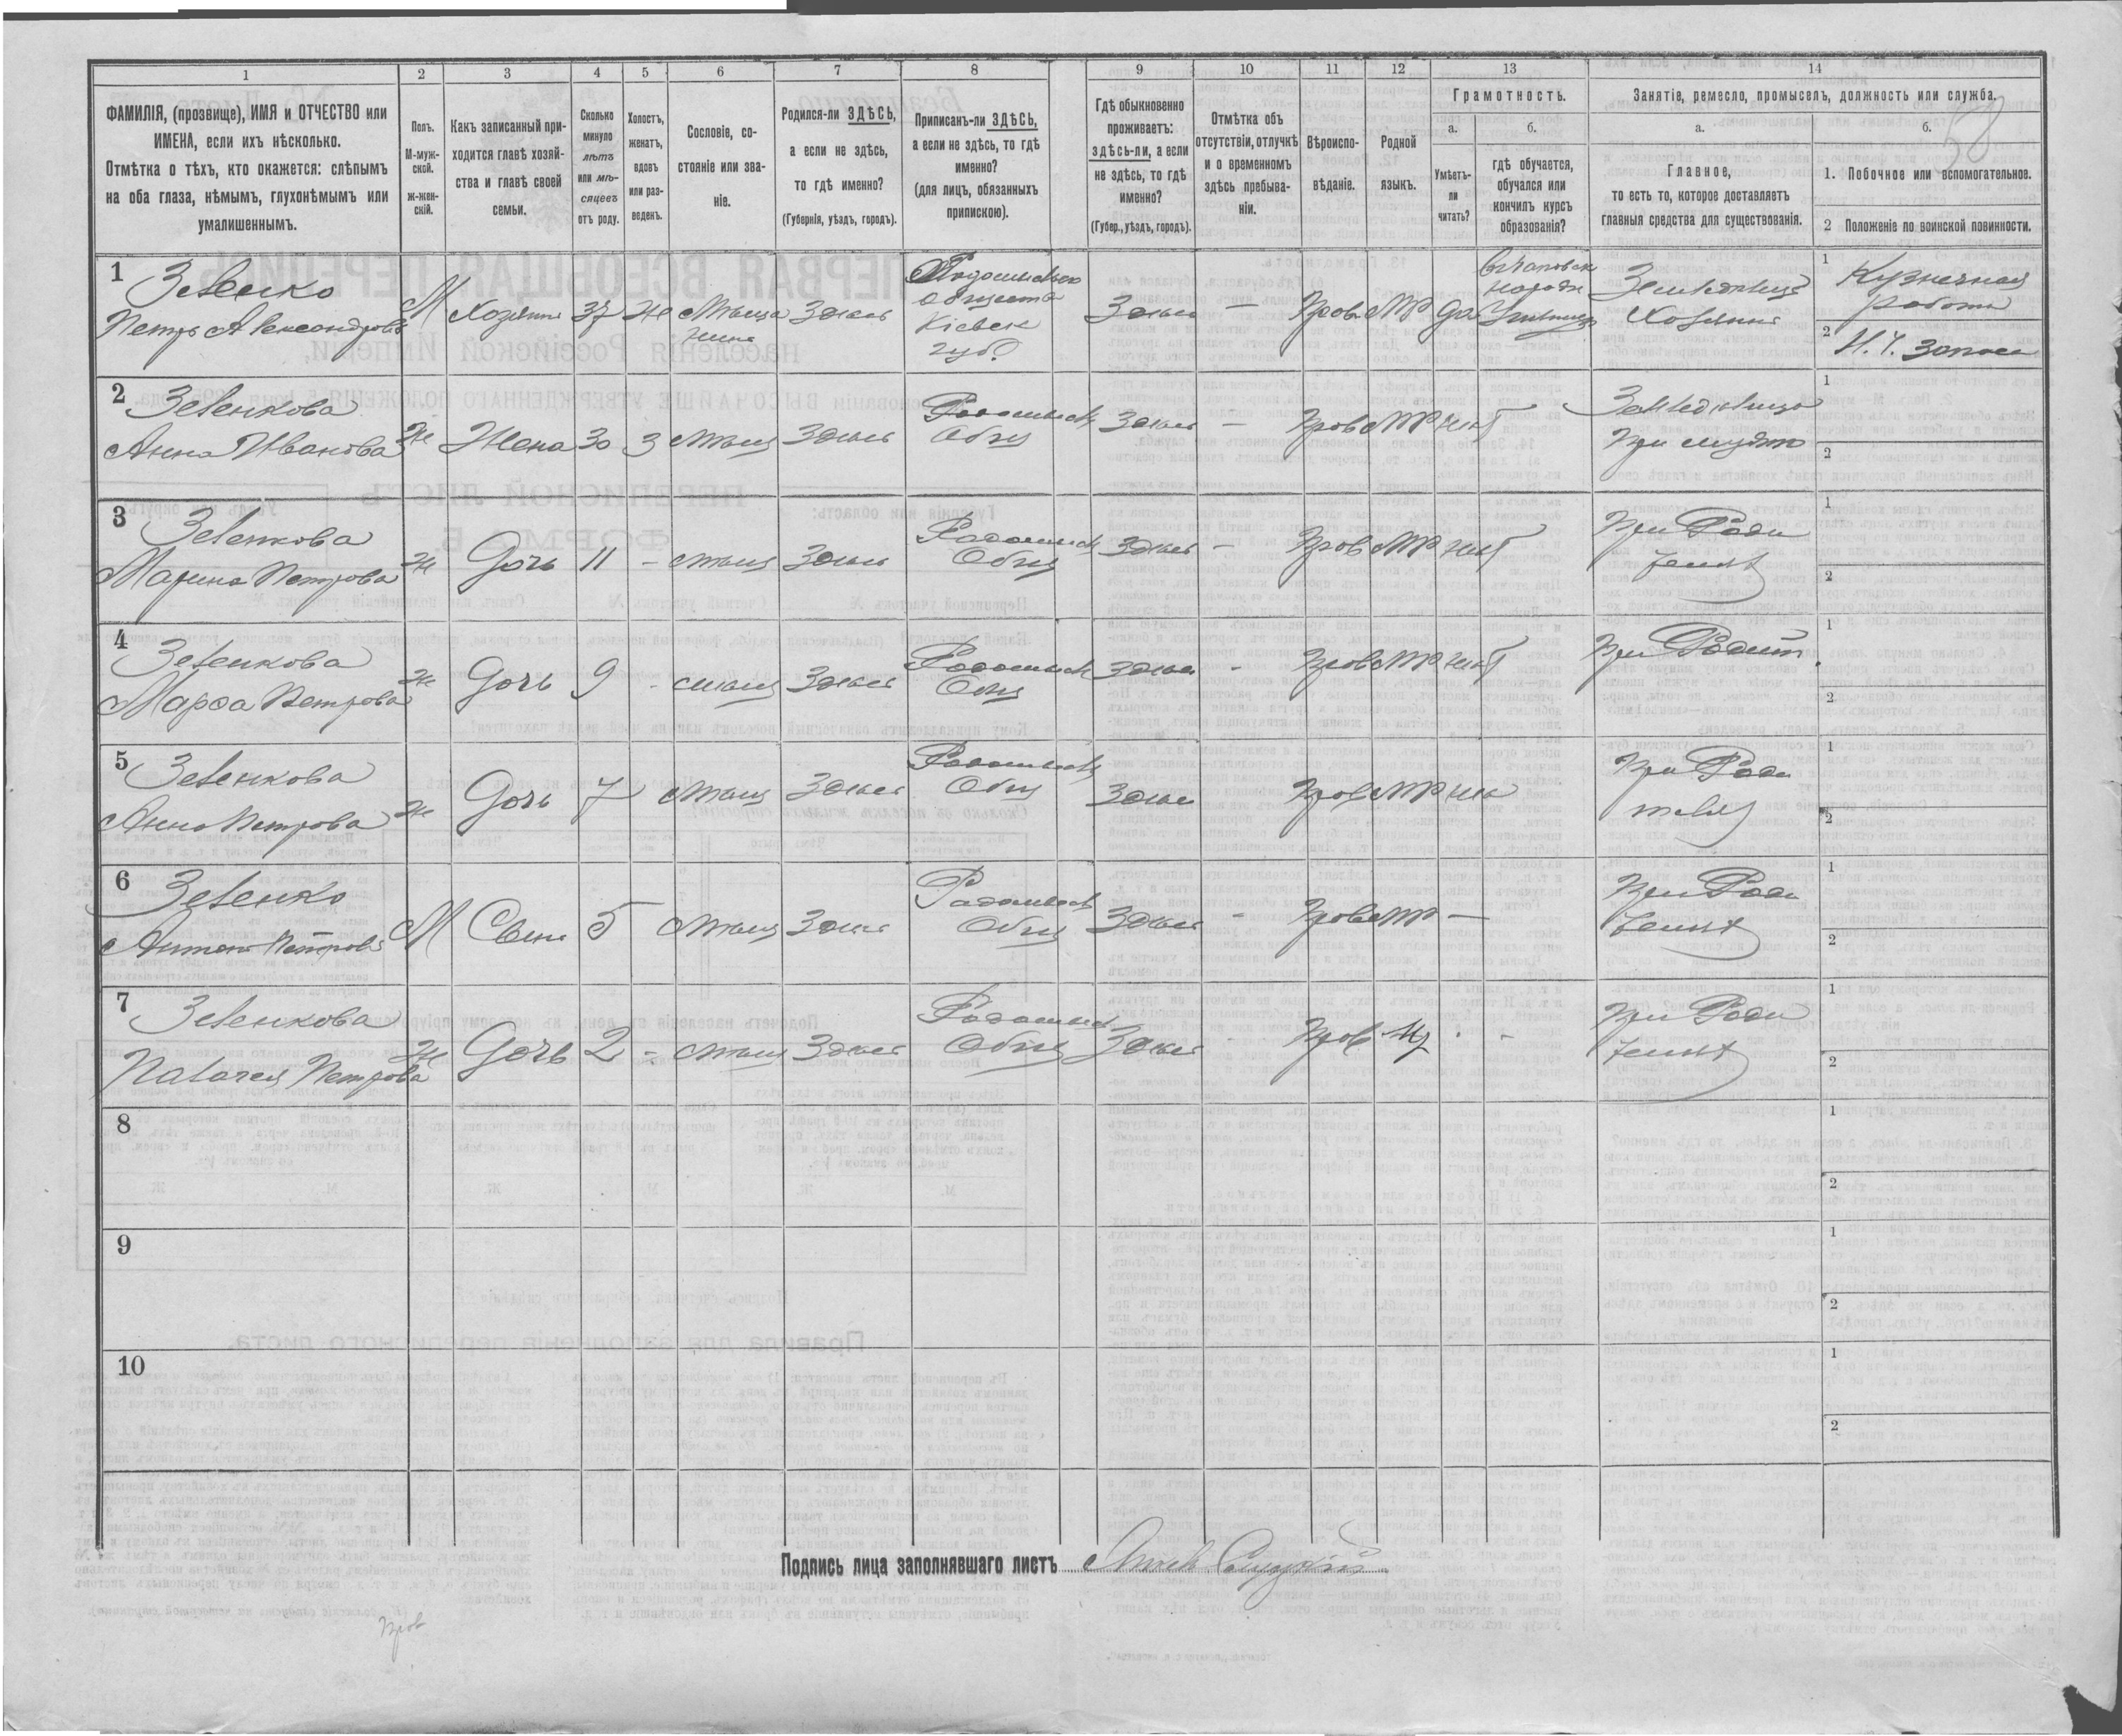 58
1
2
3
4
5
6
7
8
9
10
11
12
13
14
ФАМИЛІЯ, (прозвище), ИМЯ и ОТЧЕСТВО или
ИМЕНА, если ихъ нѣсколько.
Отмѣтка о тѣхъ, кто окажется: слѣпымъ
на оба глаза, нѣмымъ, глухонѣмымъ или
умалишеннымъ.
Полъ.
М-муж-
ской.
ж-жен-
скій.
Какъ записанный при-
ходится главѣ хозяй-
ства и главѣ своей
семьи.
Сколько
минуло
лѣтъ
или мѣ-
сяцевъ
отъ роду.
Холостъ,
женатъ,
вдовъ
или раз-
веденъ.
Сословіе, со-
стояніе или зва-
ніе.
Родился-ли ЗДѢСЬ,
а если не здѣсь,
то гдѣ именно?
(Губернія, уѣздъ, городъ).
Приписанъ-ли ЗДѢСЬ,
а если не здѣсь, то гдѣ
именно?
(для лицъ, обязанныхъ
припискою).
Гдѣ обыкновенно
проживаетъ:
здѣсь-ли, а если
не здѣсь, то гдѣ
именно?
(Губер., уѣздъ, городъ).
Отмѣтка объ
отсутствіи, отлучкѣ
и о временномъ
здѣсь пребыва-
ніи.
Вѣроиспо-
вѣданіе.
Родной
языкъ.
Грамотность.
а.
Умѣетъ-
ли
читать?
б.
гдѣ обучается,
обучался или
кончилъ курсъ
образованія?
Занятіе, ремесло, промыселъ, должность или служба.
а.
Главное,
то есть то, которое доставляетъ
главныя средства для существованія.
б.
1. Побочное или вспомогательное.
2 Положеніе по воинской повинности.
1
Зеленко
Петръ Александровъ
М
Хозяинъ
37
Же
Мѣща
нинъ
Здѣсь
Радомысльско
Общества
Кіевск
губ.
Здѣсь
—
Прав
МР
Да
народн
Училище
Земледѣлецъ
Хозяинъ
1
Кузнечная
работа
2
Н. Ч. запаса
2
Зеленкова
Анна Иванова
Ж
Жена
30
З
Мѣщ
Здѣсь
Радомысл
Общ
Здѣсь
—
Прав
МР
нѣт
Земледѣлица
при мужѣ
1
2
3
Зеленкова
Марина Петрова
Ж
Дочь
11
-
мѣщ
Здѣсь
Радомысл
Общ
Здѣсь
—
Прав
МР
нѣт
При Роди
теляхъ
1
2
4
Зеленкова
Марѳа Петрова
Ж
Дочь
9
-
мѣщ
Здѣсь
Радомысл
Общ
Здѣсь
-
Прав
МР
нѣт
При Родит.
1
2
5
Зеленкова
Анна Петрова
Ж
Дочь
7
Мѣщ
Здѣсь
Радомысл
Общ
Здѣсь
Прав
МР
нѣ
При Роди
телях
1
2
6
Зеленко
Антонъ Петровъ
М
Сынъ
5
Мѣщ
Здѣсь
Радомысл
Общ
Здѣсь
-
Прав
МР
—
При Роди
теляхъ
1
2
7
Зеленкова
Палагея Петрова
Ж
Дочь
2
-
мѣщ
Здѣсь
Радомысл
Общ
Здѣсь
Прав
При Роди
теляхъ
1
2
8
1
2
9
1
2
10
1
2
Подпись лица заполнявшаго листъ
Пров